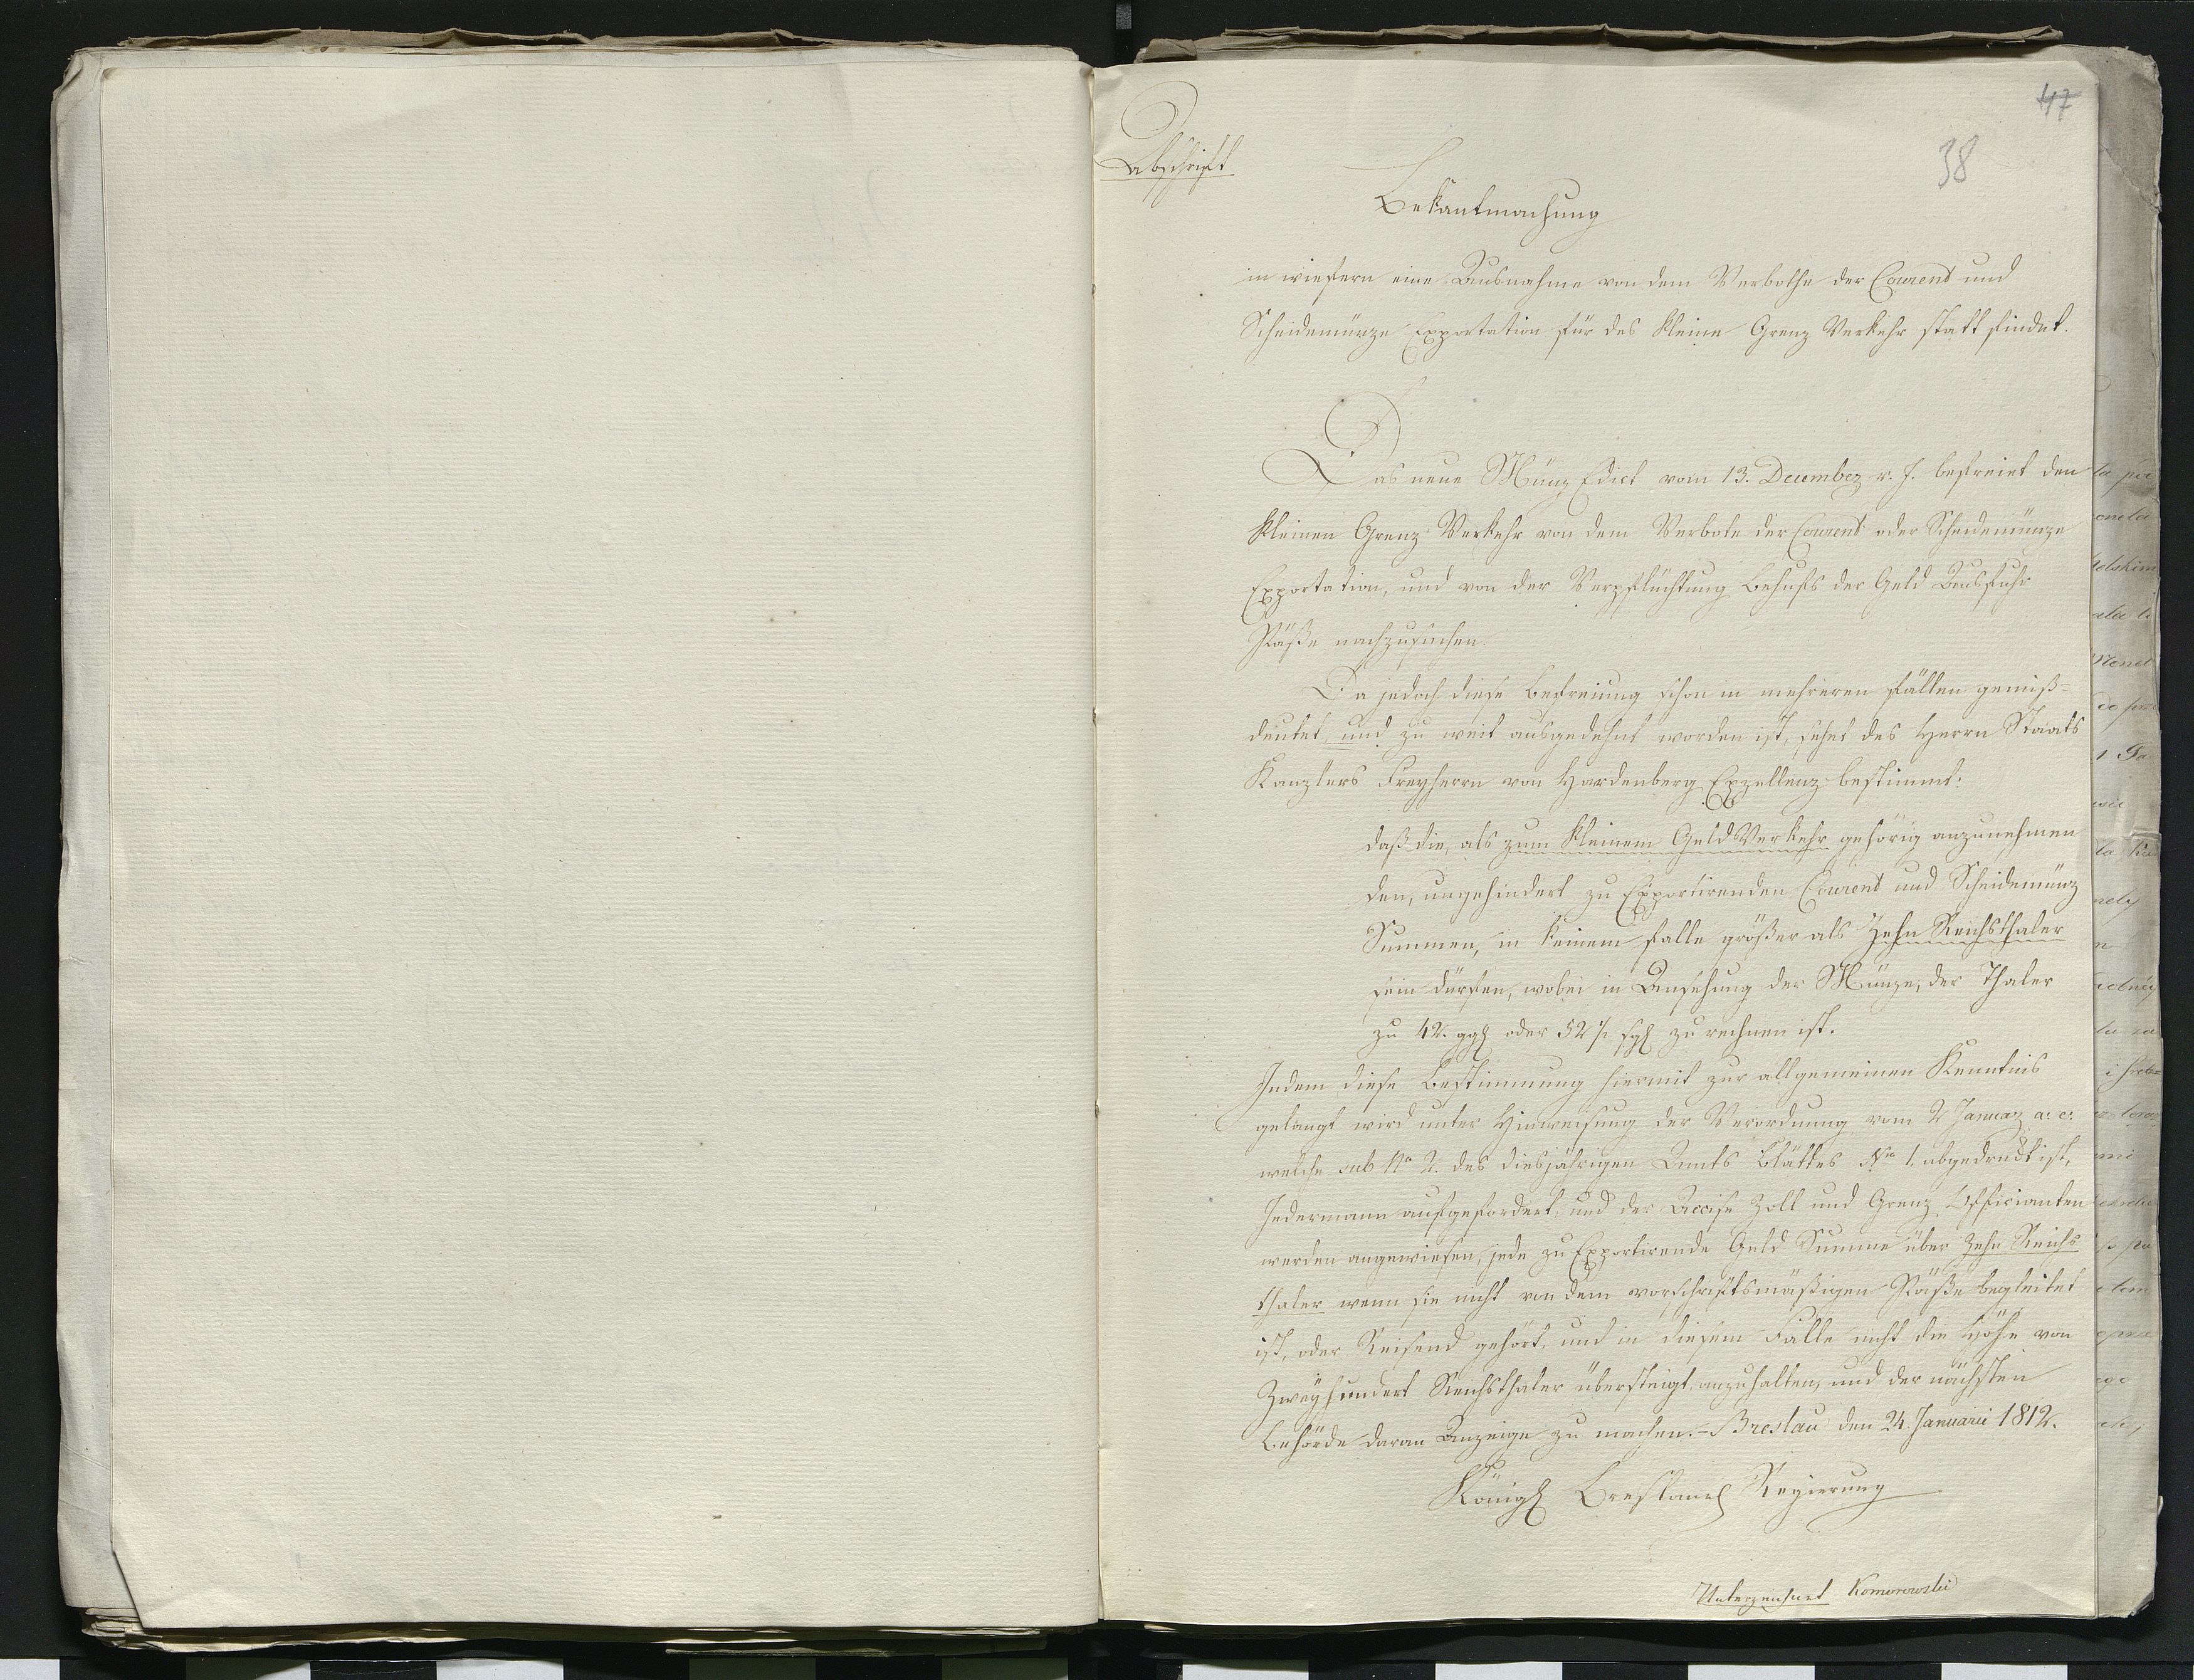 47
38
Abschrift
Bekantmachung
in wiefern eine Ausnahme von dem Verbothe der Courent und
Scheidemünze Exportation für das kleine Grenz Verkehr statt findet.
Das neue Münz Edict vom 13. December v. J. befreiet den
kleinen Grenz Verkehr von dem Verbote der Courent oder Scheidemünze
Exportation, und von der Verpflüchtung Behufs der Geld Ausfuhr
Päße nachzusuchen.
Da jedoch diese Befreiung schon in mehreren Fällen gemiß-
deutet und zu weit ausgedehnt worden ist, sehet des Herrn Staats
Kanzlers Freyherrn von Hardenberg Exzellenz bestimmt:
daß die, als zum kleinem Geld Verkehr gehörig anzunehmen
den, ungehindert zu Exportirenden Courent und Scheidemünz
Summen, in keinem Falle größer als Zehn Reichsthaler
sein dürfen, wobei in Ansehung der Münze, der Thaler
zu 42. ggl oder 52 1/2 sgl zu rechnen ist.
Indem diese Bestimmung hiermit zur allgemeinen Kenntnis
gelangt wird unter Hinweisung der Verordnung vom 2 Januar a. c.
welche sub No 2. des diesjährigen Amts Blattes No 1. abgedruckt ist,
Jedermann aufgefordert, und der Accise Zoll und Grenz Officianten
werden angewiesen, jede zu Exportirende Geld Summe über Zehn Reichs
thaler wenn sie nicht von dem vorschriftsmäßigen Päße begleitet
ist, oder Reisend gehört, und in diesem Falle nicht die Höhe von
Zweyhundert Reichsthaler übersteigt anzuhalten, und der nächsten
Behörde davon Anzeige zu machen. - Breslau den 24. Januarii 1812.
Königl Breslauel Regierung
Unterzeichnet Komorowski